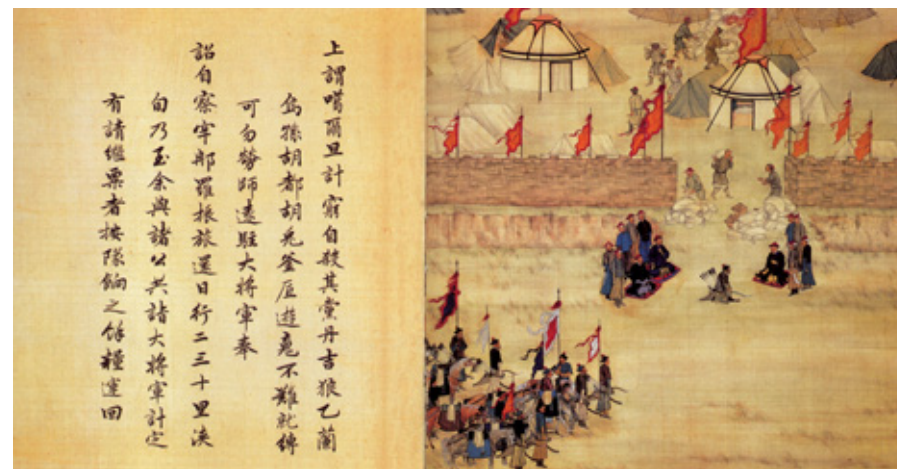 上謂噶爾旦計窮自殺其黨丹吉狼乙蘭
烏孫胡都胡釜底遊魂不難就縛
可勿勞師遠駐大將軍奉
詔自察罕郍羅振旅還日行二三十里浹
旬乃至余與諸公共詣大將軍計定
有請繼粟者按隊餉之餘糧運回